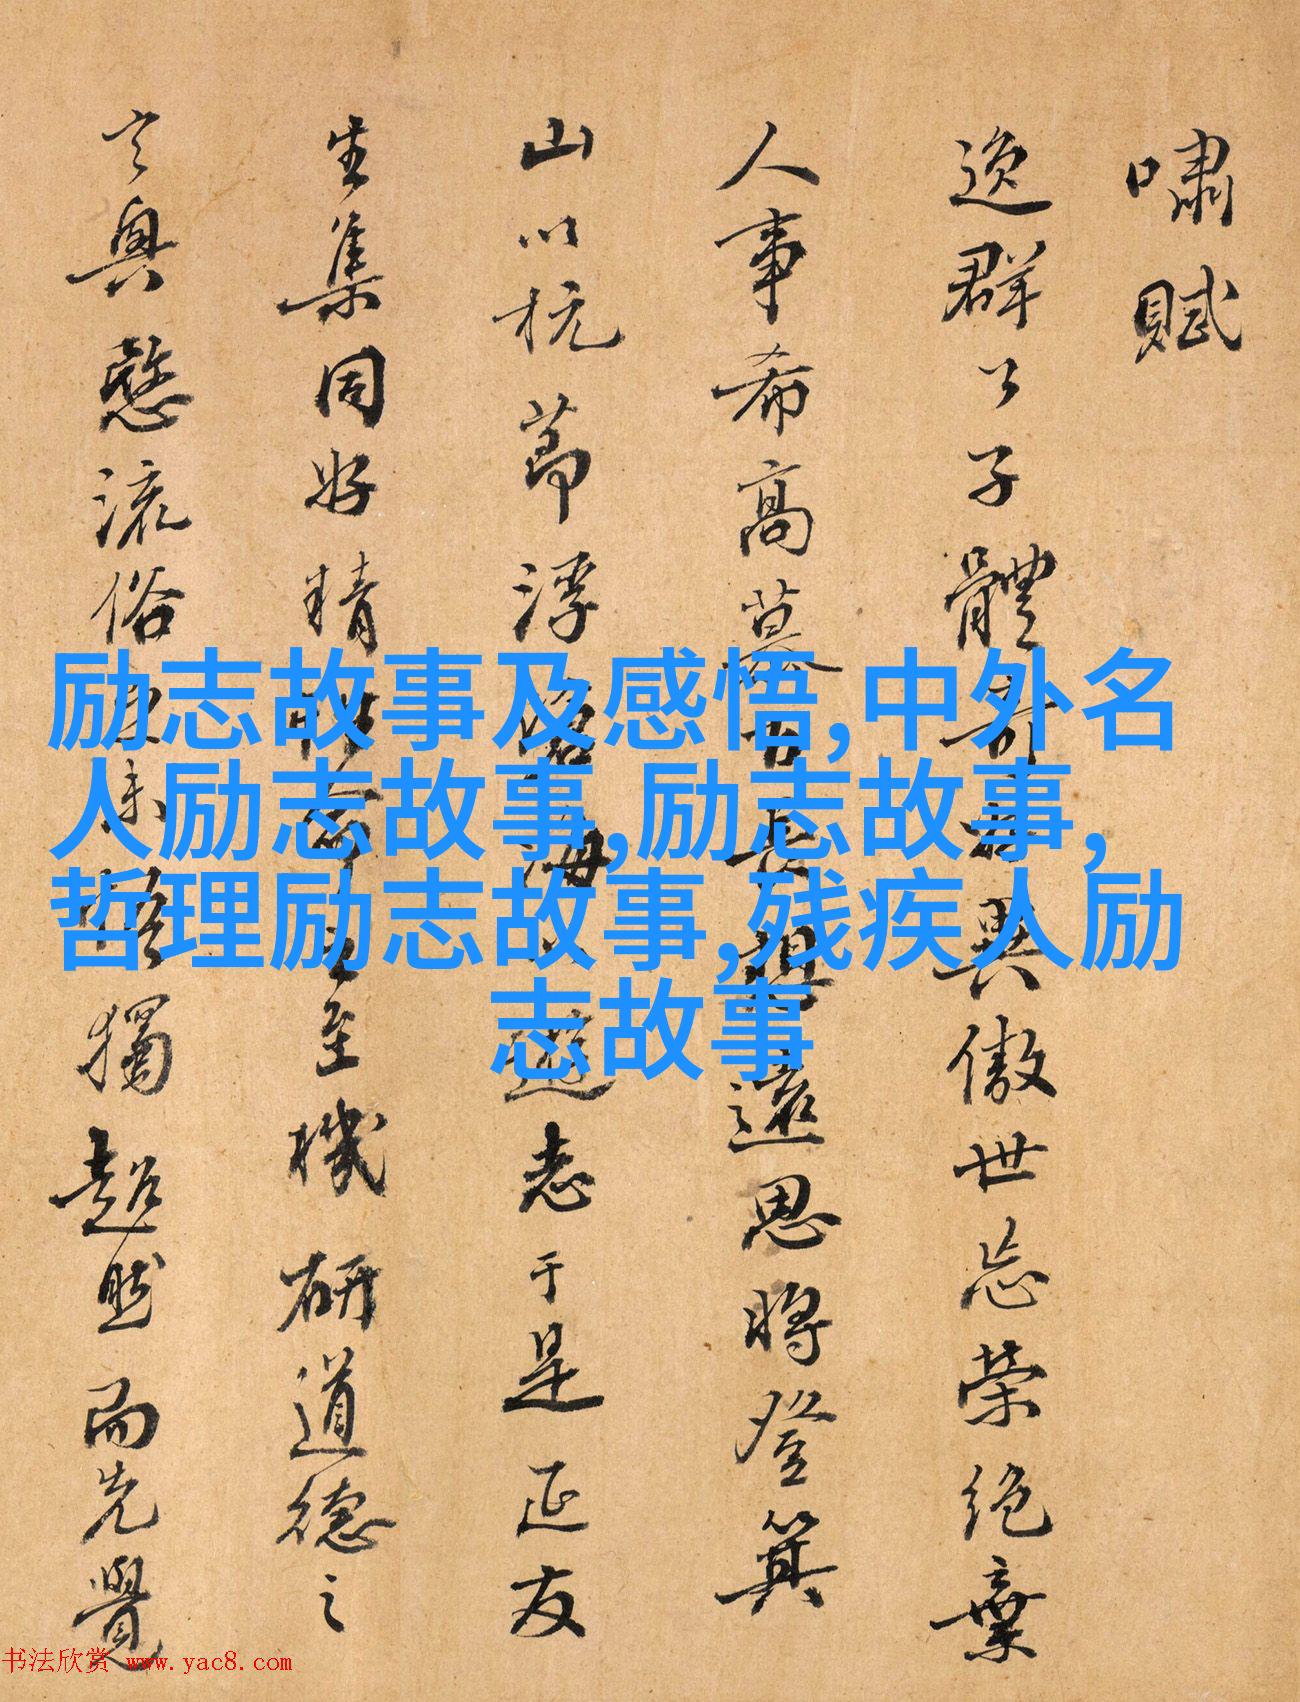 嘯賦
逸群公子體奇好異傲世忘榮絕棄
人事希高慕古長想遠思將登箕
山以抗節浮滄海以遊志于是延友
生集同好精性命之至機研道德之
玄奧愍流俗之未悟獨超然而先覺
励志故事及感悟,中外名
人励志故事,励志故事,
哲理励志故事,残疾人励
志故事
书法欣赏 www.yac8.com